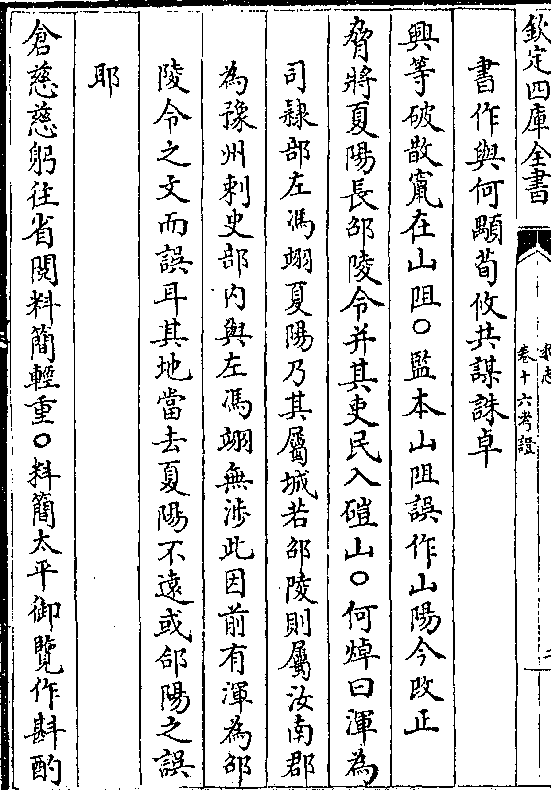 欽定四庫全書
卷十六考證
書作與何顒荀攸共謀誅卓
興等破散竄在山阻○監本山阻誤作山陽今改正
脅將夏陽長邵陵令并其吏民入磑山○何焯曰渾為
司隸部左馮翊夏陽乃其屬城若邵陵則屬汝南郡
為豫州刺史部内與左馮翊無渉此因前有渾為邵
陵令之文而誤耳其地當去夏陽不逺或郃陽之誤
耶
倉慈慈躬往省閱料簡輕重○料簡太平御覽作斟酌